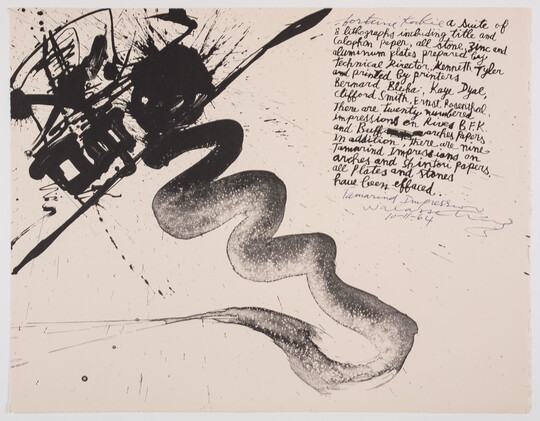 a suite of
8 lithographs including title and
Colophon Paper, all stone, zinc and
aluminum plates prepared by
Technical Director, Kenneth Tyler
and printed By printers
Bernard Bleha, Kaye Dyal,
Clifford Smith, Ernst Rosenthal
There are twenty numbered
impressions on Rives B.F.K
and Buff arches Papers
In addition, there are nine
Tamarind Impressions on
arches and Shintori Papers
all Plates and Stones
have been effaced.
Tamarind Impression
10-8-64